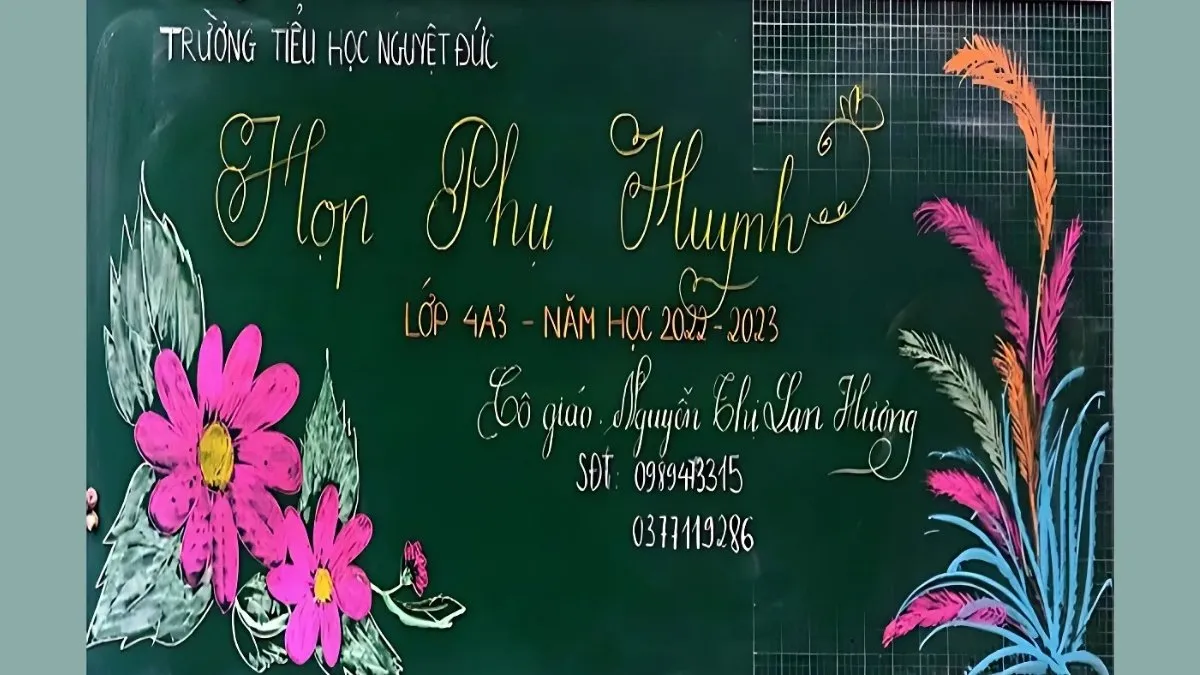 TRƯỜNG TIỂU HỌC NGUYỆT ĐỨC
Họp Phụ Huynh
LỚP 4A3 - NĂM HỌC 2022-2023
Cô giáo. Nguyễn Thị Lan Hương
SĐT: 0989473315
0377119286